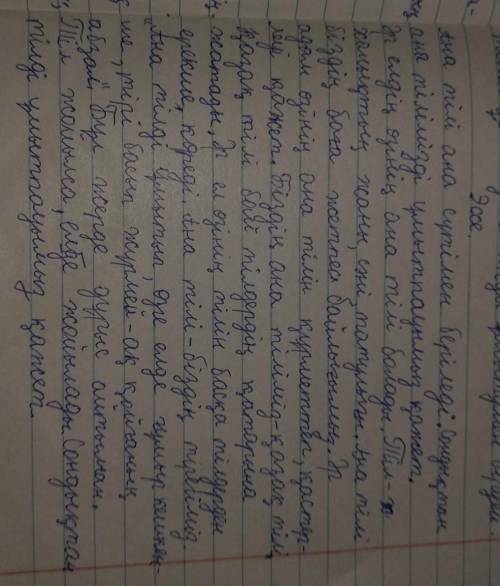 Эссе.
Ана тілі ана сүтімен беріледі. Сондықтан
ана тілімізді ұмытпауымыз қажет.
Әр елдің өзінің ана тілі болады. Тіл - әр
халықтың жаны, сәні, тапулығы. Ана тілі
біздің баға жетпес байлығымыз. Әр
адам өзінің ана тілін құрметтеп, қастер-
леуі қажет. Біздің ана тіліміз - қазақ тілі.
Қазақ тілі бай тілдердің қатарына
жатады. Әр ел өзінің тілін басқа тілдерден
ерекше көреді. Ана тілі - біздің тірегіміз.
"Ана тілді ұмытып, өзге елде ғұмыр кешкен-
ше, тірі басың жүрмей-ақ қойғаның
абзал". Бұл жерде дұрыс айтылған.
Тіл жойылса, елде жойылады. Сондықтан
тілді ұмытпауымыз қажет.